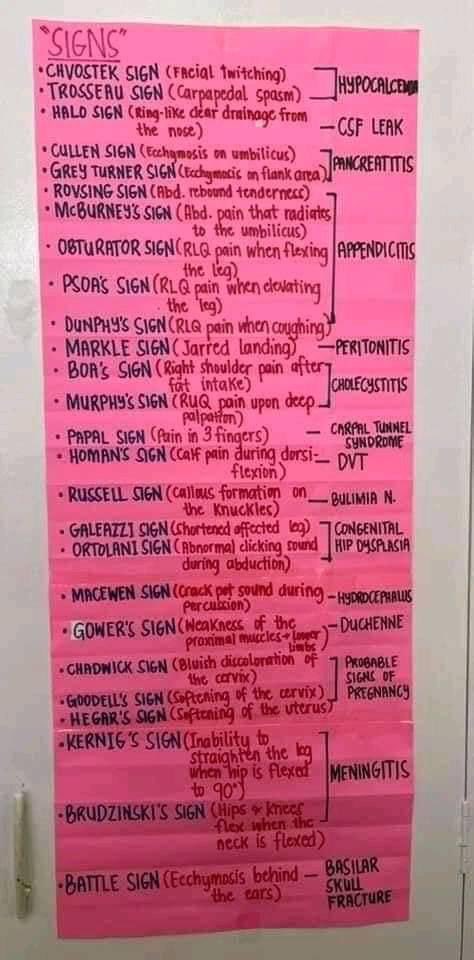 "SIGNS"
• CHVOSTEK SIGN (Facial twitching)
• TROSSEAU SIGN (Carpapedal spasm)
HYPOCALCEMIA
• HALO SIGN (Ring-like clear drainage from
the nose)
– CSF LEAK
• CULLEN SIGN (Ecchymosis on umbilicus)
• GREY TURNER SIGN (Ecchymosis on flank area)
PANCREATITIS
• ROVSING SIGN (Abd. rebound tenderness)
• McBURNEY'S SIGN (Abd. pain that radiates
to the umbilicus)
• OBTURATOR SIGN (RLQ pain when flexing
the leg)
• PSOA'S SIGN (RLQ pain when elevating
the leg)
• DUNPHY'S SIGN (RLQ pain when coughing)
APPENDICITIS
• MARKLE SIGN (Jarred landing) – PERITONITIS
• BOA'S SIGN (Right shoulder pain after
fat intake)
• MURPHY'S SIGN (RUQ pain upon deep
palpation)
CHOLECYSTITIS
• PAPAL SIGN (Pain in 3 fingers) – CARPAL TUNNEL
SYNDROME
• HOMAN'S SIGN (Calf pain during dorsi-
flexion)
– DVT
• RUSSELL SIGN (Callous formation on
the knuckles)
– BULIMIA N.
• GALEAZZI SIGN (Shortened affected leg)
• ORTOLANI SIGN (Abnormal clicking sound
during abduction)
CONGENITAL
HIP DYSPLASIA
• MACEWEN SIGN (Crack pot sound during
percussion)
– HYDROCEPHALUS
• GOWER'S SIGN (Weakness of the
proximal muscles + lower
limbs)
– DUCHENNE
• CHADWICK SIGN (Bluish discoloration of
the cervix)
• GOODELL'S SIGN (Softening of the cervix)
• HEGAR'S SIGN (Softening of the uterus)
PROBABLE
SIGNS OF
PREGNANCY
• KERNIG'S SIGN (Inability to
straighten the leg
when hip is flexed
to 90°)
• BRUDZINSKI'S SIGN (Hips & knees
flex when the
neck is flexed)
MENINGITIS
• BATTLE SIGN (Ecchymosis behind
the ears)
– BASILAR
SKULL
FRACTURE